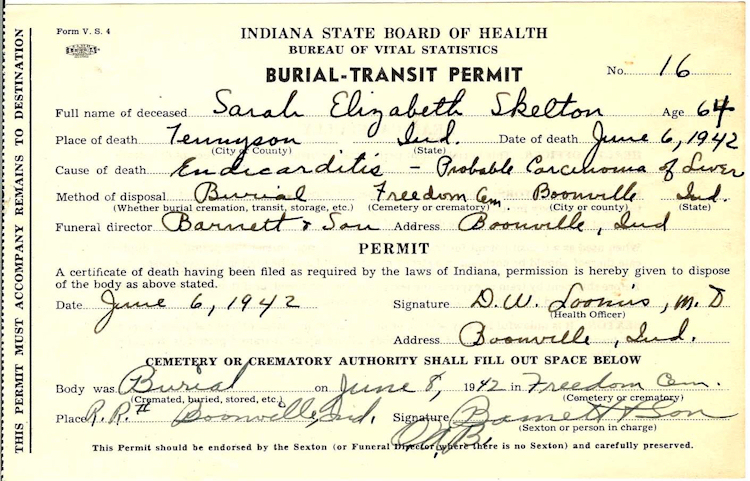 Form V. S. 4
INDIANA STATE BOARD OF HEALTH
BUREAU OF VITAL STATISTICS
BURIAL-TRANSIT PERMIT
No. 16
Full name of deceased Sarah Elizabeth Skelton Age 64
Place of death Tennyson Ind. Date of death June 6, 1942
(City or County) (State)
Cause of death Endicarditis - Probable Carcinoma of Liver
Method of disposal Burial Freedom Cem. Boonville Ind.
(Whether burial cremation, transit, storage, etc.) (Cemetery or crematory) (City or county) (State)
Funeral director Barnett & Son Address Boonville, Ind
PERMIT
A certificate of death having been filed as required by the laws of Indiana, permission is hereby given to dispose
of the body as above stated.
Date June 6, 1942 Signature D. W. Loomis, M. D
(Health Officer)
Address Boonville, Ind.
CEMETERY OR CREMATORY AUTHORITY SHALL FILL OUT SPACE BELOW
Body was Burial on June 8, 1942 in Freedom Cem.
(Cremated, buried, stored, etc.) (Cemetery or crematory)
Place R. R. Boonville, Ind. Signature Barnett & Son
(Sexton or person in charge)
This Permit should be endorsed by the Sexton (or Funeral Director where there is no Sexton) and carefully preserved.
THIS PERMIT MUST ACCOMPANY REMAINS TO DESTINATION